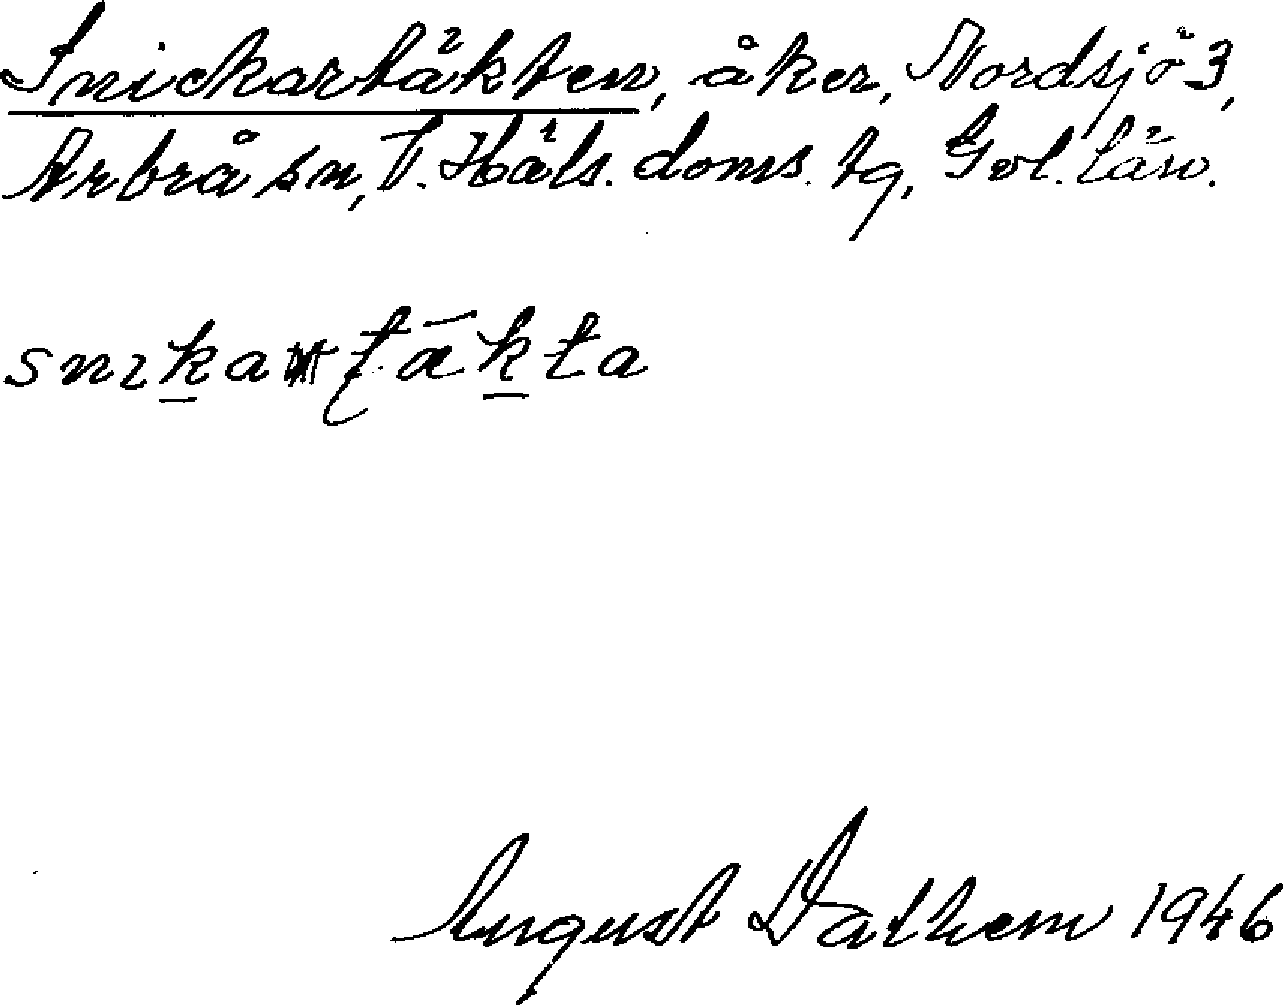 Snickartäkten, åker, Nordsjö 3,
Arbrå sn, V. Häls. doms. tg, Gvl. län.
August Dathem 1946